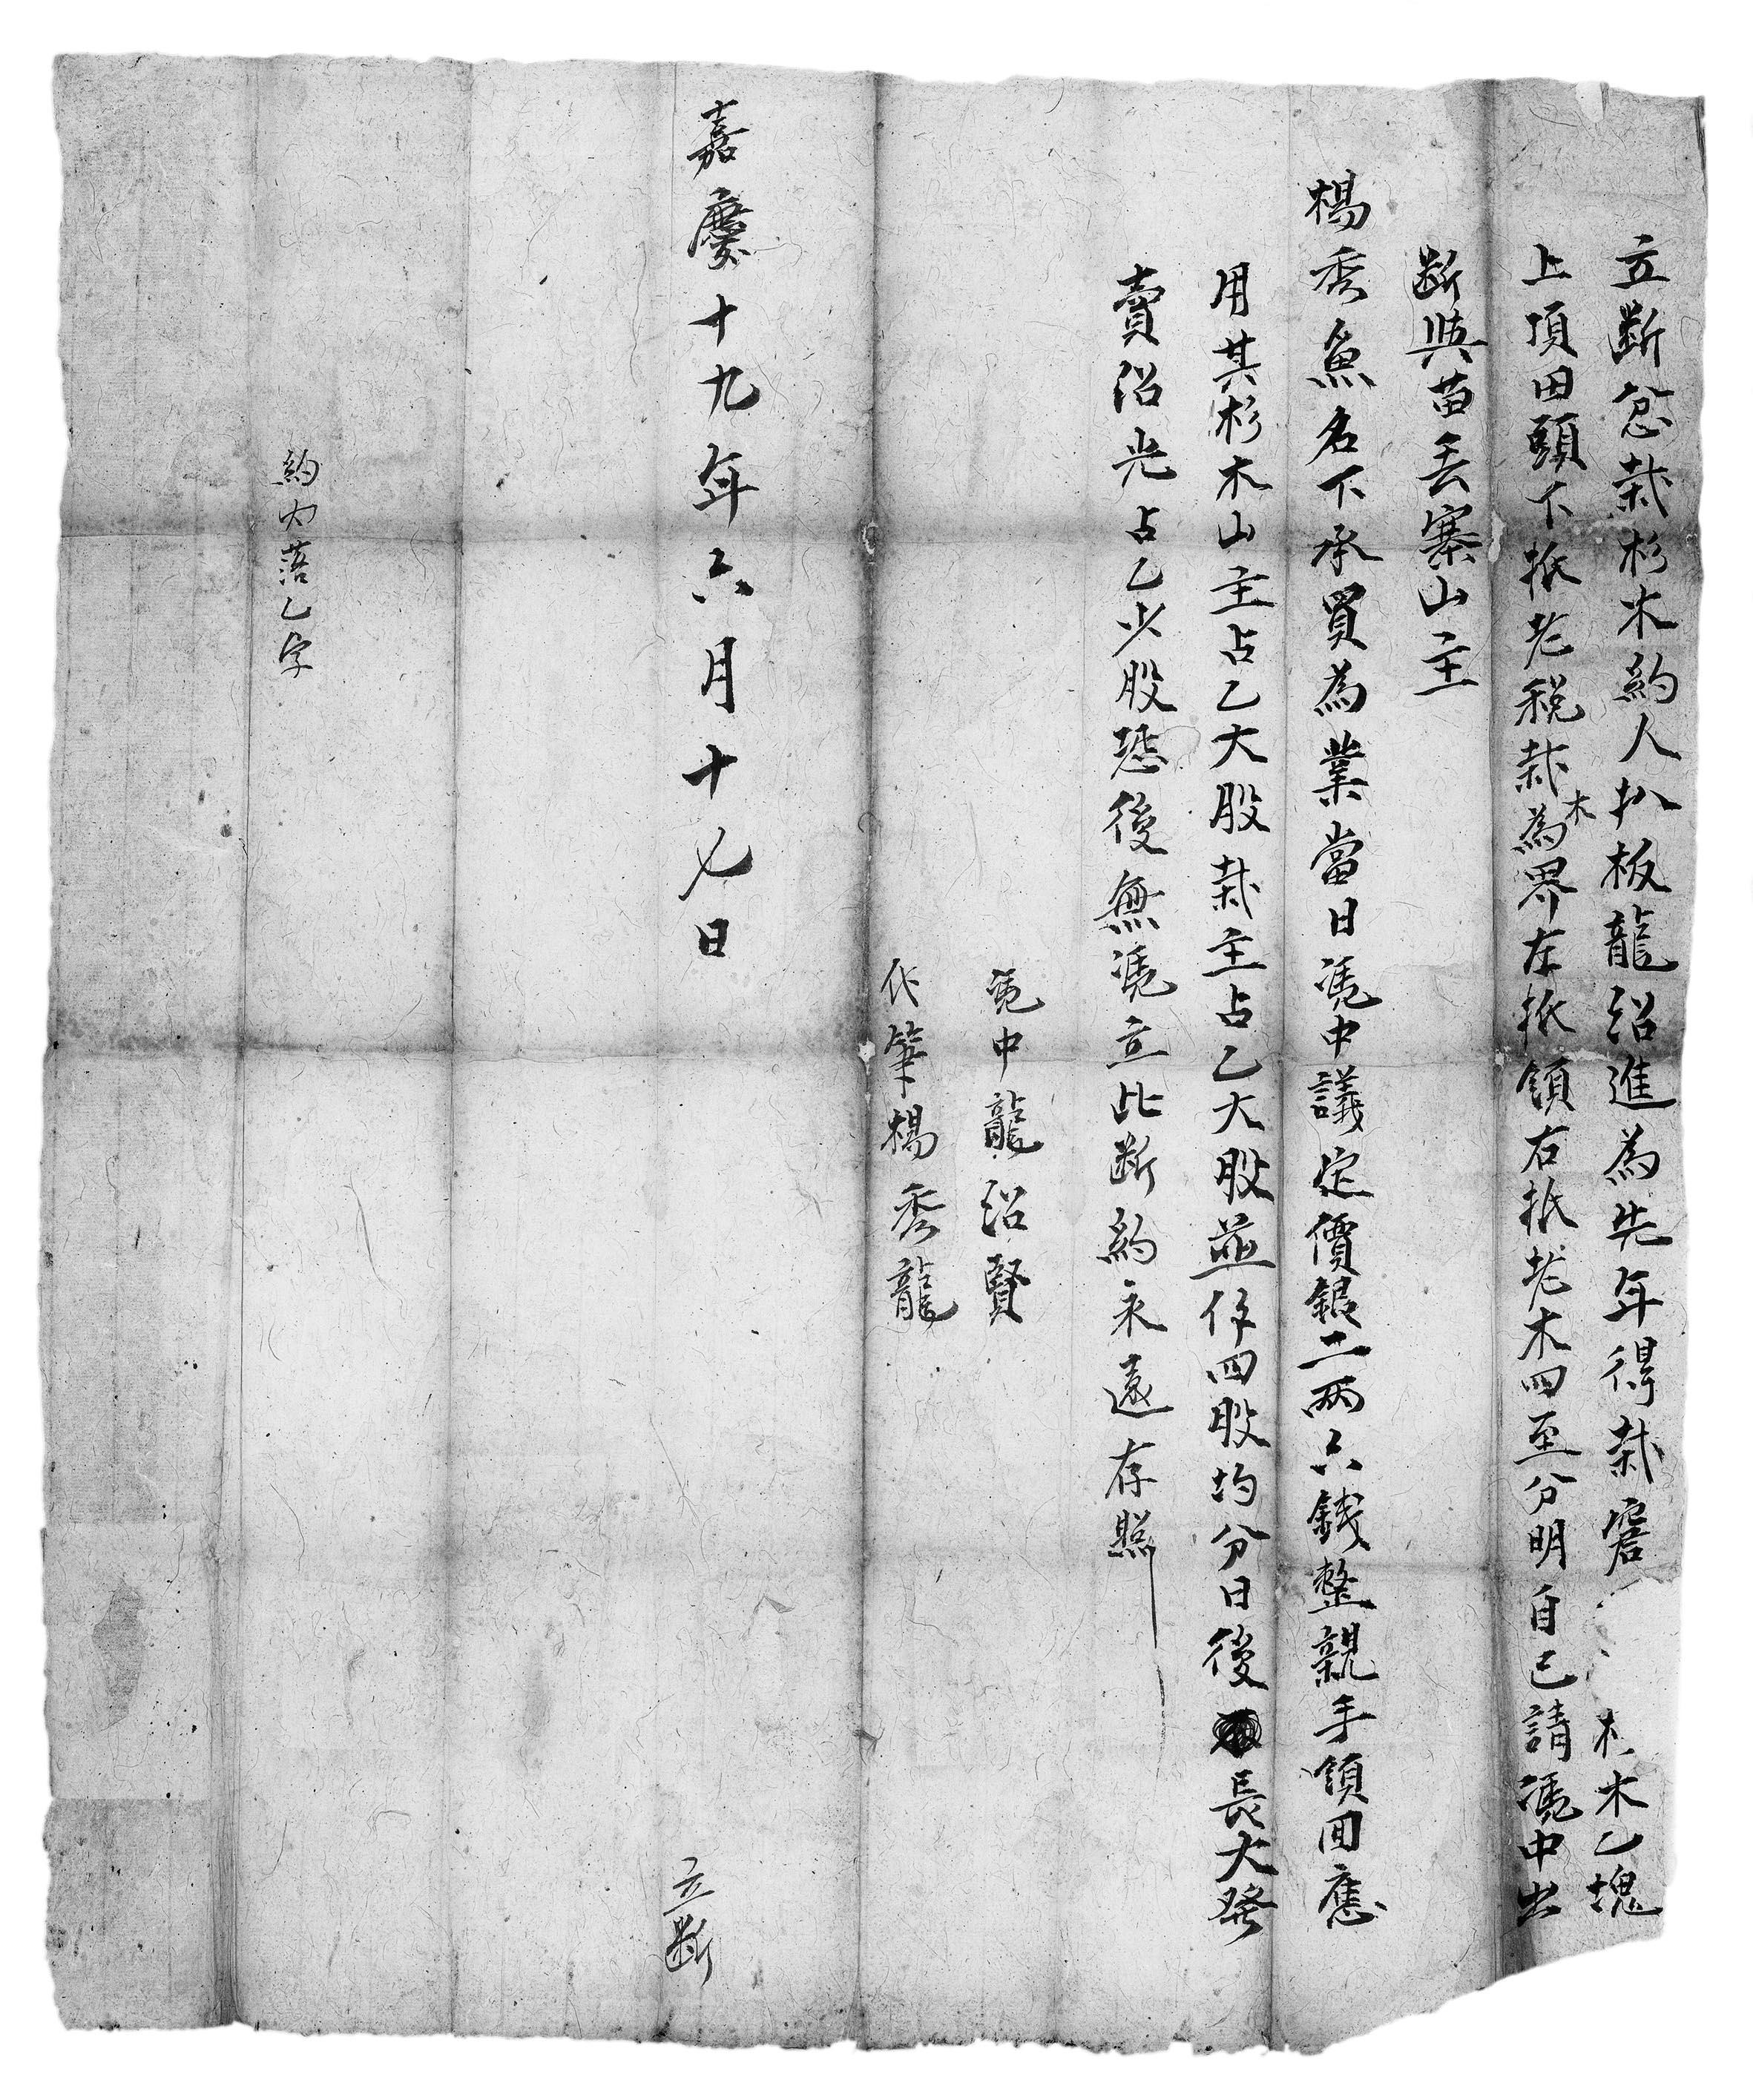 立斷忿栽杉木約人扒板龍紹進為先年得栽窖木乙塊
上項田頭下抵老稅栽木為界左抵領右抵老木四至分明自己請凴中出
斷與苗丢寨山主
楊秀魚名下承買為業當日凴中議定價銀二两六錢整親手領囬應
用其杉木山主占乙大股栽主占乙大股並作四股均分日後長大發
賣紹光占乙少股恐後無凴立此斷約永遠存照
凴中龍紹賢
代筆楊秀龍
嘉慶十九年六月十七日
立斷
約內落乙字